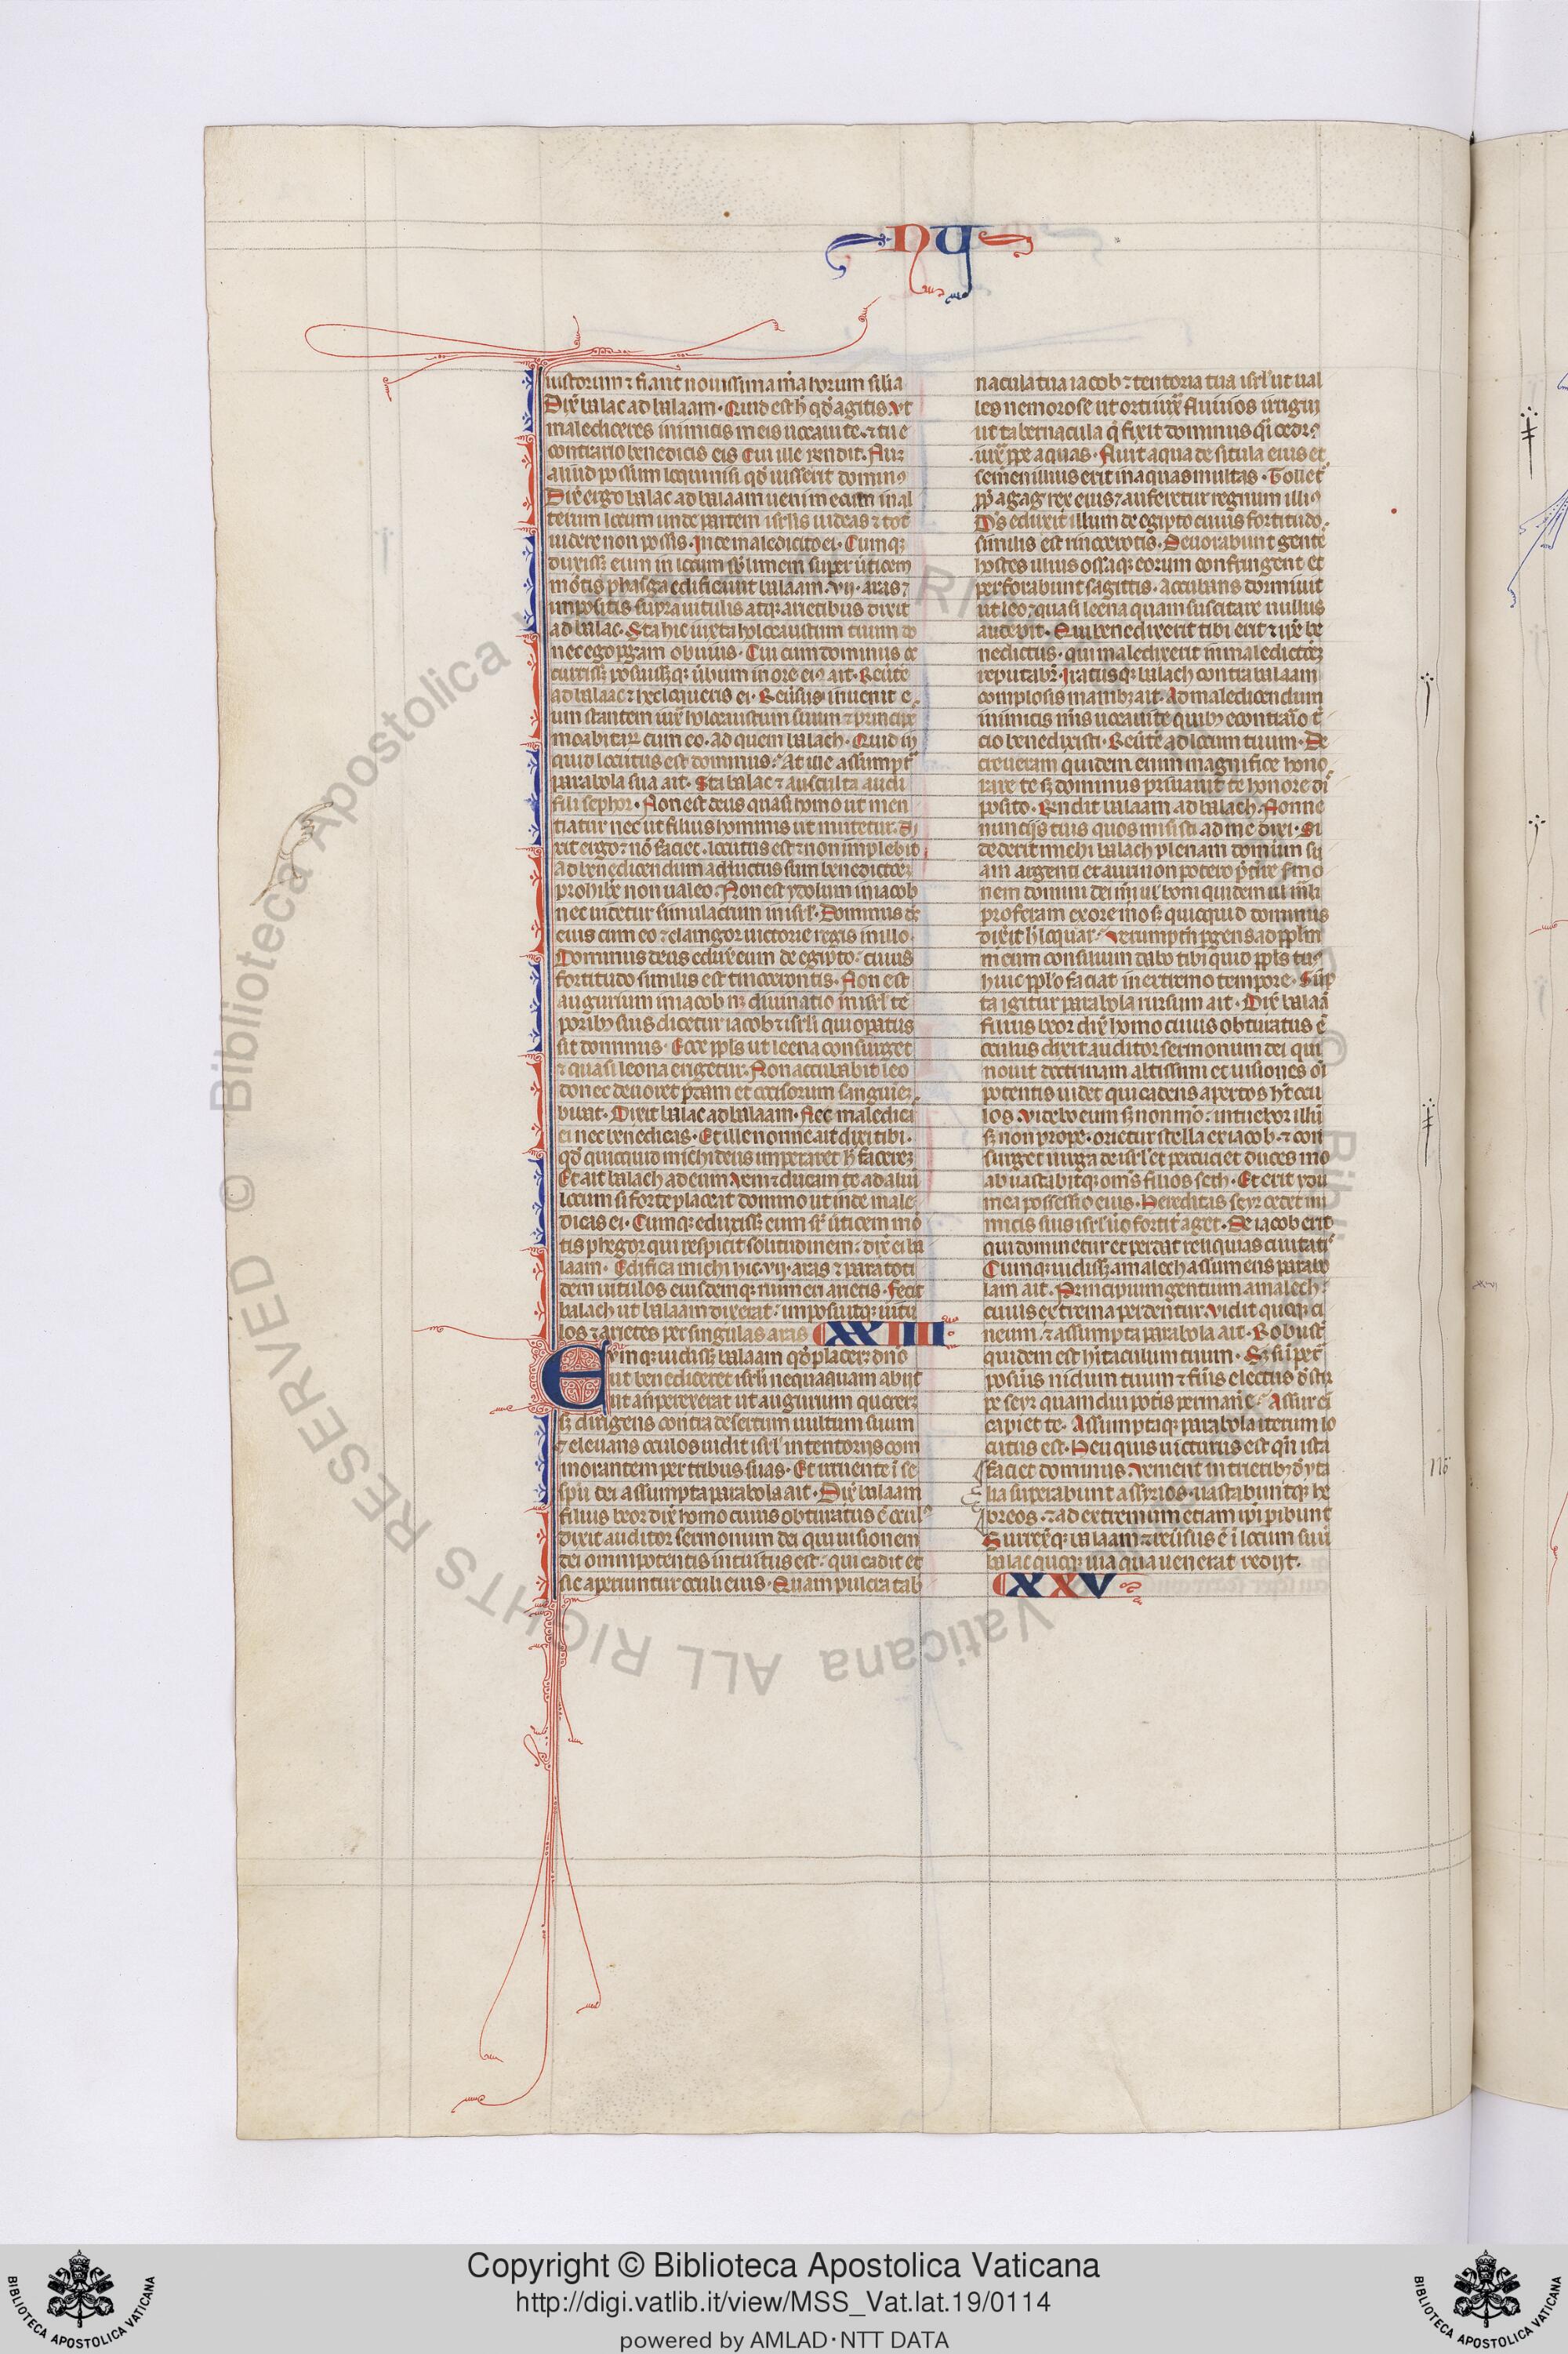 NU
iustorum ⁊ fiant nouissima m̅a horum silia
Dix̅ balac ad balaam. Quid est h̅ qd̅ agitis. vt
malediceres inimicis meis uocaui te. ⁊ tu e
contrario benedicis eis Cui ille rn̅dit. Nū
aliud possum loqui nisi qd̅ iusserit domin9
Dix̅ ergo balac ad balaam ueni mecum in al
terum locum unde partem isrl̅is uideas ⁊ tot̅
uidere non possis. Inde maledicito ei. Cumq;
duxiss; eum in locum sublimem super u̅ticem
mo̅tis phasga edificauit balaam .vij. aras ⁊
impositis supra uitulis atq; arietibus dixit
ad balac. Sta hic iuxta holocaustum tuum do
nec ego p̅gam obuius. Cui cum dominus oc
curriss; posuiss;q; u̅bum in ore ei9 ait. Reu̅te̅
ad balac ⁊ hec loqueris ei. Reu̅sus inuenit e
um stantem iux̅ holocaustum suum ⁊ principe̅
moabitaꝝ cum eo. ad quem balach. Quid in
quid locutus est dominus. At ille assumpt̅
parabola sua ait. Sta balac ⁊ ausculta audi
fili sephor. Non est deus quasi homo ut men
tiatur nec ut filius hominis ut mutetur. Di
xit ergo ⁊ no̅ faciet. locutus est ⁊ non implebit
ad benedicendum adductus sum benedictoe̅
prohibe̅ non ualeo. Non est ydolum in iacob
nec uidetur simulacrum in isrl̅. Dominus ds̅
eius cum eo ⁊ clamgor uictorie regis in illo
Dominus deus edux̅ eum de egipto. cuius
fortitudo similis est rinocerontis. Non est
augurium in iacob n; diuinatio in isrl̅ te̅
poribȝ suis dicetur iacob ⁊ isrl̅i qui op̅atus
sit dominus. Ecce ppl̅s ut leena consurget
⁊ quasi leona erigetur. Non accubabit leo
donec deuoret p̅dam et occisorum sanguine̅
bibat. Dixit balac ad balaam. Nec maledicas
ei nec benedicas. Et ille nonne ait dixi tibi.
qd̅ quicquid michi deus imperaret h̅ facerem
Et ait balach ad eum veni ⁊ ducam te ad aliu̅
locum si forte placeat domino ut inde male
dicas ei. Cumq; eduxiss; eum sr̅ u̅ticem mo̅
tis phegor qui respicit solitudinem. dix̅ ei ba
laam. Edifica michi hic .vij. aras ⁊ para toti
dem uitulos eiusdemq; numeri arietis. fecit
balach ut balaam dixerat. imposuitq; uitu
los ⁊ arietes per singulas aras CXXIIII.
Cvmq; uidiss; balaam qd̅ placer; dn̅o
ut benediceret isrl̅i nequaquam abijt
ut an̅ perrexerat ut augurium quereret
s; dirigens contra desertum uultum suum
⁊ eleuans oculos uidit isrl̅ in tentorijs com
morantem per tribus suas. Et irruente i̅ se
spu̅ dei assumpta parabola ait. Dix̅ balaam
filius beor dix̅ homo cuius obturatus e̅ ocul9
dixit auditor sermonum dei qui uisionem
dei omnipotentis intuitus est. qui cadit et
sic aperiuntur oculi eius. Quam pulcra tab
nacula tua iacob ⁊ tentoria tua isrl̅ ut ual
les nemorose ut orti iux̅ fluuios irrigui
ut tabernacula q̅ fixit dominus q̅i cedr9
iux̅ ppe aquas. fluit aqua de situla eius et
semen illius erit in aquas multas. Tollet̅
pp̅ agag rex eius ⁊ auferetur regnum illi9
Ds̅ eduxit illum de egipto cuius fortitudo
similis est rinocerotis. Deuorabunt gente̅
hostes illius ossaq; eorum confringent et
perforabunt sagittis. accubans dormiuit
ut leo ⁊ quasi leena quam suscitare nullus
audebit. Qui benedixerit tibi erit ⁊ ip̅e be
nedictus. qui maledixerit in maledictoe̅
reputabr̅. Iratusq; balach contra balaam
complosis manibȝ ait. Ad maledicendum
inimicis meis uocaui te quibȝ econtrario t̅
cio benedixisti. Reu̅te̅ ad locum tuum. De
creueram quidem eum magnifice hono
rare te s; dominus priuauit te honore di
posito. Rn̅dit balaam ad balach. Nonne
nuncijs tuis quos misisti ad me dixi. Si
dederit michi balach plenam domum su
am argenti et auri non potero p̅t̅ire s̅mo
nem domini dei mi̅ ul̅ boni quidem ul̅ mali
proferam ex ore meo s; quicquid dominus
dix̅it h̅ loquar. Verumpt̅n p̅gens ad ppl̅m
meum consilium dabo tibi quid ppl̅s tu9
huic ppl̅o faciat in extremo tempore. Su̅p
ta igitur parabola rursum ait. Dix̅ balaa̅
filius beor dix̅ homo cuius obturatus e̅
oculus dixit auditor sermonum dei qui
nouit doctrinam altissimi et uisiones oi̅
potentis uidet qui cadens apertos h̅t ocu
los. videbo eum s; non mo̅. intuebor illu̅
s; non prope. orietur stella ex iacob. ⁊ con
surget uirga de isrl̅ et percuciet duces mo
ab uastabitq; om̅s filios seth. Et erit ydu
mea possessio eius. Hereditas seyr cedet ini
micis suis isrl̅ u̅o fortit̅ aget. De iacob erit
qui dominetur et perdat reliquias ciuitatis
Cumq; uidiss; amalech assumens parabo
lam ait. Principium gentium amalech.
cuius extrema perdentur. vidit quoq; ci
neum. ⁊ assumpta parabola ait. Robust̅
quidem est h̅itaculum tuum. S; si i̅ pet̅
posu̅is nidum tuum ⁊ fu̅is electus de stir
pe seyr quamdiu potis permane̅. Assur ei̅
capiet te. Assumptaq; parabola iterum lo
cutus est. Heu quis uicturus est qn̅ ista
faciet dominus. venient in trieribȝ de yta
lia superabunt assyrios. uastabuntq; he
breos. ⁊ ad extremum etiam ipi̅ p̅ibunt
Surrex̅q; balaam ⁊ reu̅sus e̅ i̅ locum suu̅
balac quoq; uia qua uenerat redijt.
CXXV
no̅
© Biblioteca Apostolica Vaticana ALL RIGHTS RESERVED
Copyright © Biblioteca Apostolica Vaticana
http://digi.vatlib.it/view/MSS_Vat.lat.19/0114
powered by AMLAD·NTT DATA
BIBLIOTECA APOSTOLICA VATICANA
BIBLIOTECA APOSTOLICA VATICANA